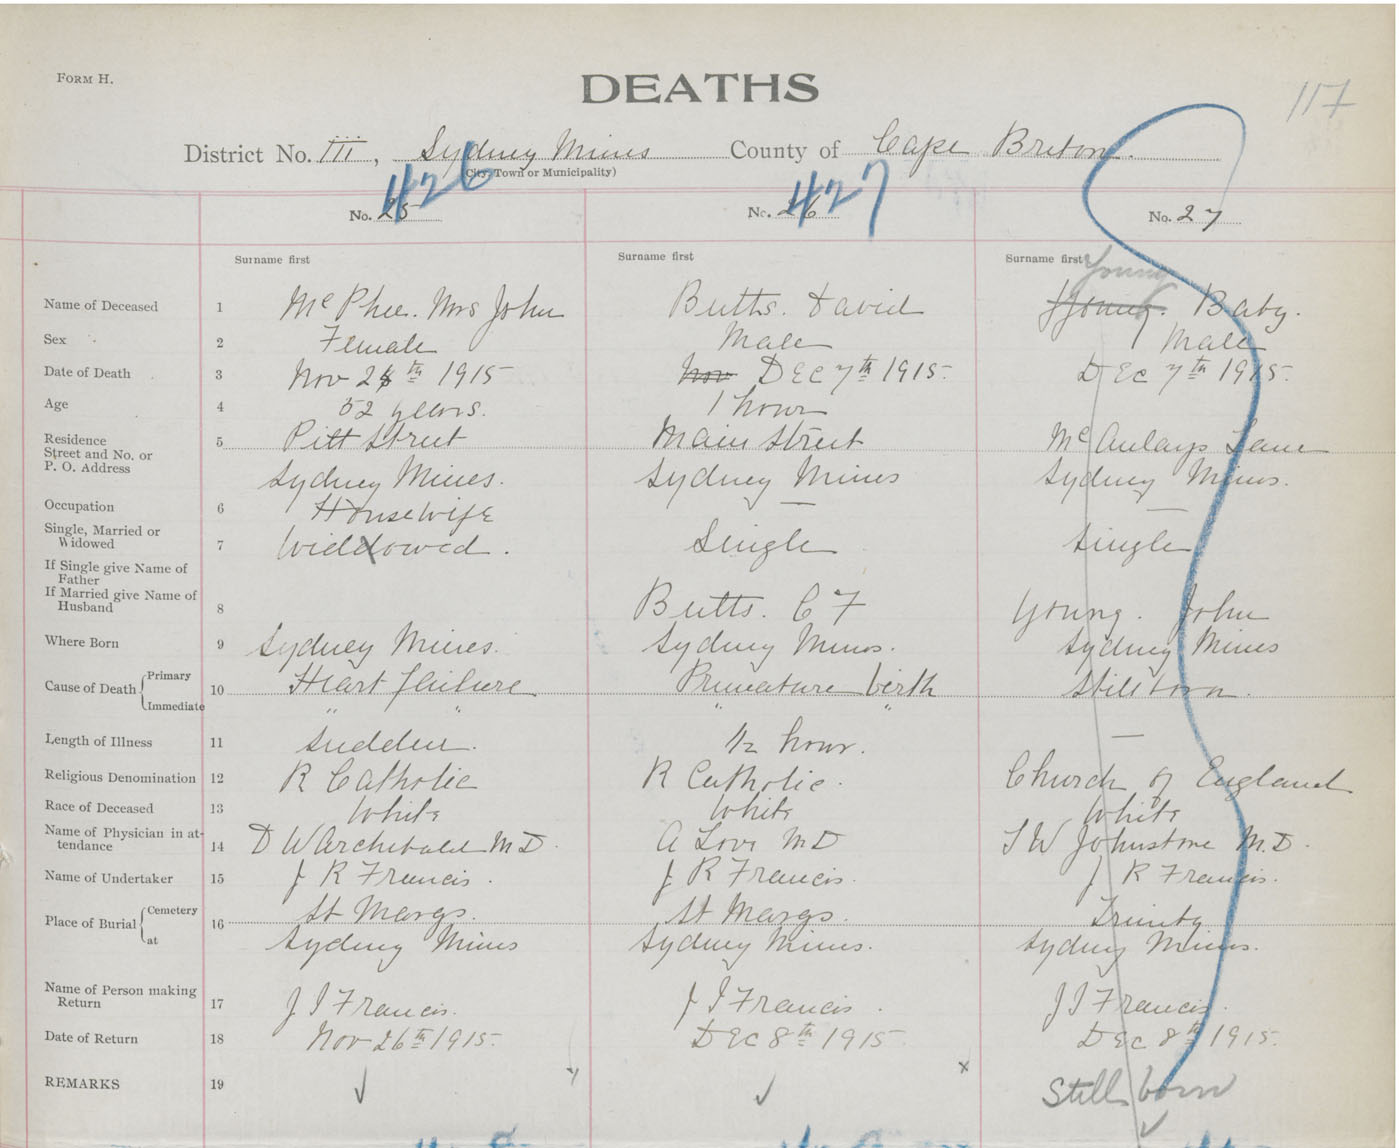 FORM H.
DEATHS
117
District No. III, Sydney Mines County of Cape Breton.
(City, Town or Municipality)
426 427
No. 25 No. 26 No. 27
Surname first Surname first Surname first Young
Name of Deceased 1 McPhee. Mrs John Butts. David Young. Baby.
Sex 2 Female Male Male
Date of Death 3 Nov 24th 1915 Nov Dec 7th 1915. Dec 7th 1915.
Age 4 52 years. 1 hour
Residence 5 Pitt Street Main Street McAulays Lane
Street and No. or
P. O. Address Sydney Mines. Sydney Mines Sydney Mines.
Occupation 6 Housewife — —
Single, Married or
Widowed 7 Widdowed. Single Single
If Single give Name of
Father
If Married give Name of
Husband 8 Butts. C F Young. John
Where Born 9 Sydney Mines. Sydney Mines. Sydney Mines
Cause of Death { Primary
10 Heart failure Premature birth Stillborn.
Immediate " " " "
Length of Illness 11 Sudden. 1/2 hour. —
Religious Denomination 12 R Catholic R Catholic. Church of England
Race of Deceased 13 White White White
Name of Physician in at-
tendance 14 D W Archibald M D. A Love M D T W Johnstone M. D.
Name of Undertaker 15 J R Francis. J R Francis. J R Francis.
Place of Burial { Cemetery
16 St Margs. St Margs. Trinity
at Sydney Mines Sydney Mines. Sydney Mines.
Name of Person making
Return 17 J J Francis. J J Francis. J J Francis.
Date of Return 18 Nov 26th 1915. Dec 8th 1915 Dec 8th 1915.
REMARKS 19 ✓ ✓ Still born
✓